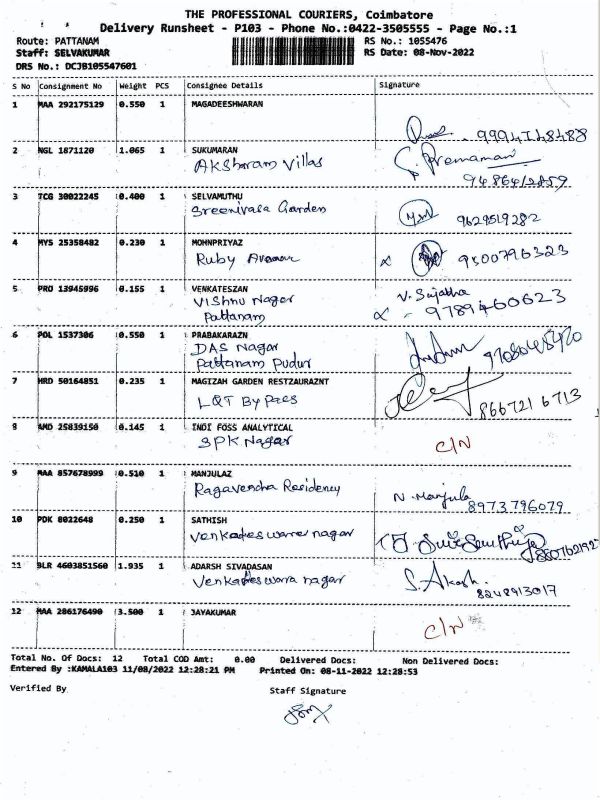 THE PROFESSIONAL COURIERS, Coimbatore
Delivery Runsheet - P103 - Phone No.:0422-3505555 - Page No.:1
Route: PATTANAM RS No.: 1055476
Staff: SELVAKUMAR RS Date: 08-Nov-2022
DRS No.: DCJB105547601
S No Consignment No Weight PCS Consignee Details Signature
1 MAA 292175129 0.550 1 MAGADEESHWARAN
9994748488
2 NGL 1871120 1.065 1 SUKUMARAN
AKSharam Villas S. Premaman
9486412859
3 TCG 30022245 0.400 1 SELVAMUTHU
Sreenivasa Garden 9629519282
4 MYS 25358482 0.230 1 MOHNPRIYAZ
Ruby 9500796323
5 PRO 13945996 0.155 1 VENKATESZAN
Vishnu Nagar V. Sujatha
Pattanam 9789460623
6 POL 1537306 0.550 1 PRABAKARAZN
DAS Nagar
Pattanam Pudur
7 HRD 50164851 0.235 1 MAGIZAH GARDEN RESTZAURAZNT
L&T By Pass 8667216713
8 AMD 25839150 0.145 1 INDI FOSS ANALYTICAL
SPK Nagar C/N
9 MAA 857678999 0.510 1 MANJULAZ
Ragavendra Residency N. Manjula
8973796079
10 PDK 8022648 0.250 1 SATHISH
Venkadeswarer nagar
11 BLR 4603851560 1.935 1 ADARSH SIVADASAN
Venkadeswara nagar S. Akash
8248913017
12 MAA 286176490 3.500 1 JAYAKUMAR
C/N
Total No. Of Docs: 12 Total COD Amt: 0.00 Delivered Docs: Non Delivered Docs:
Entered By :KAMALA103 11/08/2022 12:28:21 PM Printed On: 08-11-2022 12:28:53
Verified By Staff Signature